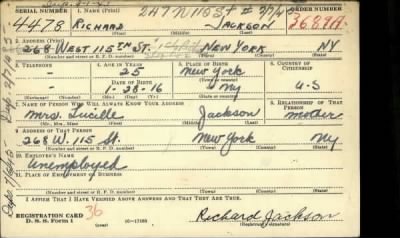 247 W 115 St # 2/7/45
SERIAL NUMBER 1. NAME (Print) ORDER NUMBER
4478 RICHARD JACKSON 3689A
2. ADDRESS (Print)
268 WEST 115TH ST. NEW YORK NY
(Number and street or R. F. D. number) (Town) (County) (State)
3. TELEPHONE 4. AGE IN YEARS 5. PLACE OF BIRTH 6. COUNTRY OF CITIZENSHIP
- 25 New York
DATE OF BIRTH
- 1-28-16 NY U-S
(Exchange) (Number) (Mo.) (Day) (Yr.) (State or country)
7. NAME OF PERSON WHO WILL ALWAYS KNOW YOUR ADDRESS 8. RELATIONSHIP OF THAT PERSON
Mrs. Lucille Jackson mother
(Mr., Mrs., Miss) (First) (Middle) (Last)
9. ADDRESS OF THAT PERSON
268 W. 115 St. New York NY
(Number and street or R. F. D. number) (Town) (County) (State)
10. EMPLOYER'S NAME
Unemployed
11. PLACE OF EMPLOYMENT OR BUSINESS
-
(Number and street or R. F. D. number) (Town) (County) (State)
I AFFIRM THAT I HAVE VERIFIED ABOVE ANSWERS AND THAT THEY ARE TRUE.
REGISTRATION CARD 36
D. S. S. Form 1 16-17105
Richard Jackson
(Registrant's signature)